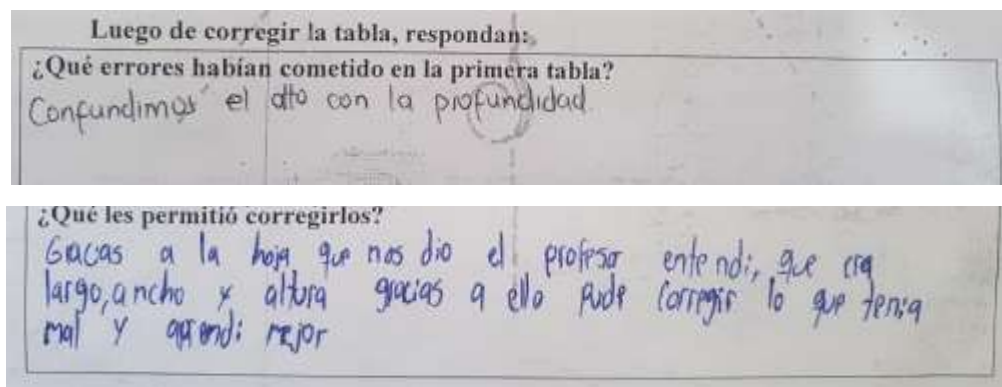 Luego de corregir la tabla, respondan:
¿Qué errores habían cometido en la primera tabla?
Confundimos el alto con la profundidad.
¿Qué les permitió corregirlos?
Gracas a la hoja que nos dio el profesor entendi, que era
largo, ancho y altura gracias a ello pude corregir lo que tenia
mal y aprendi mejor